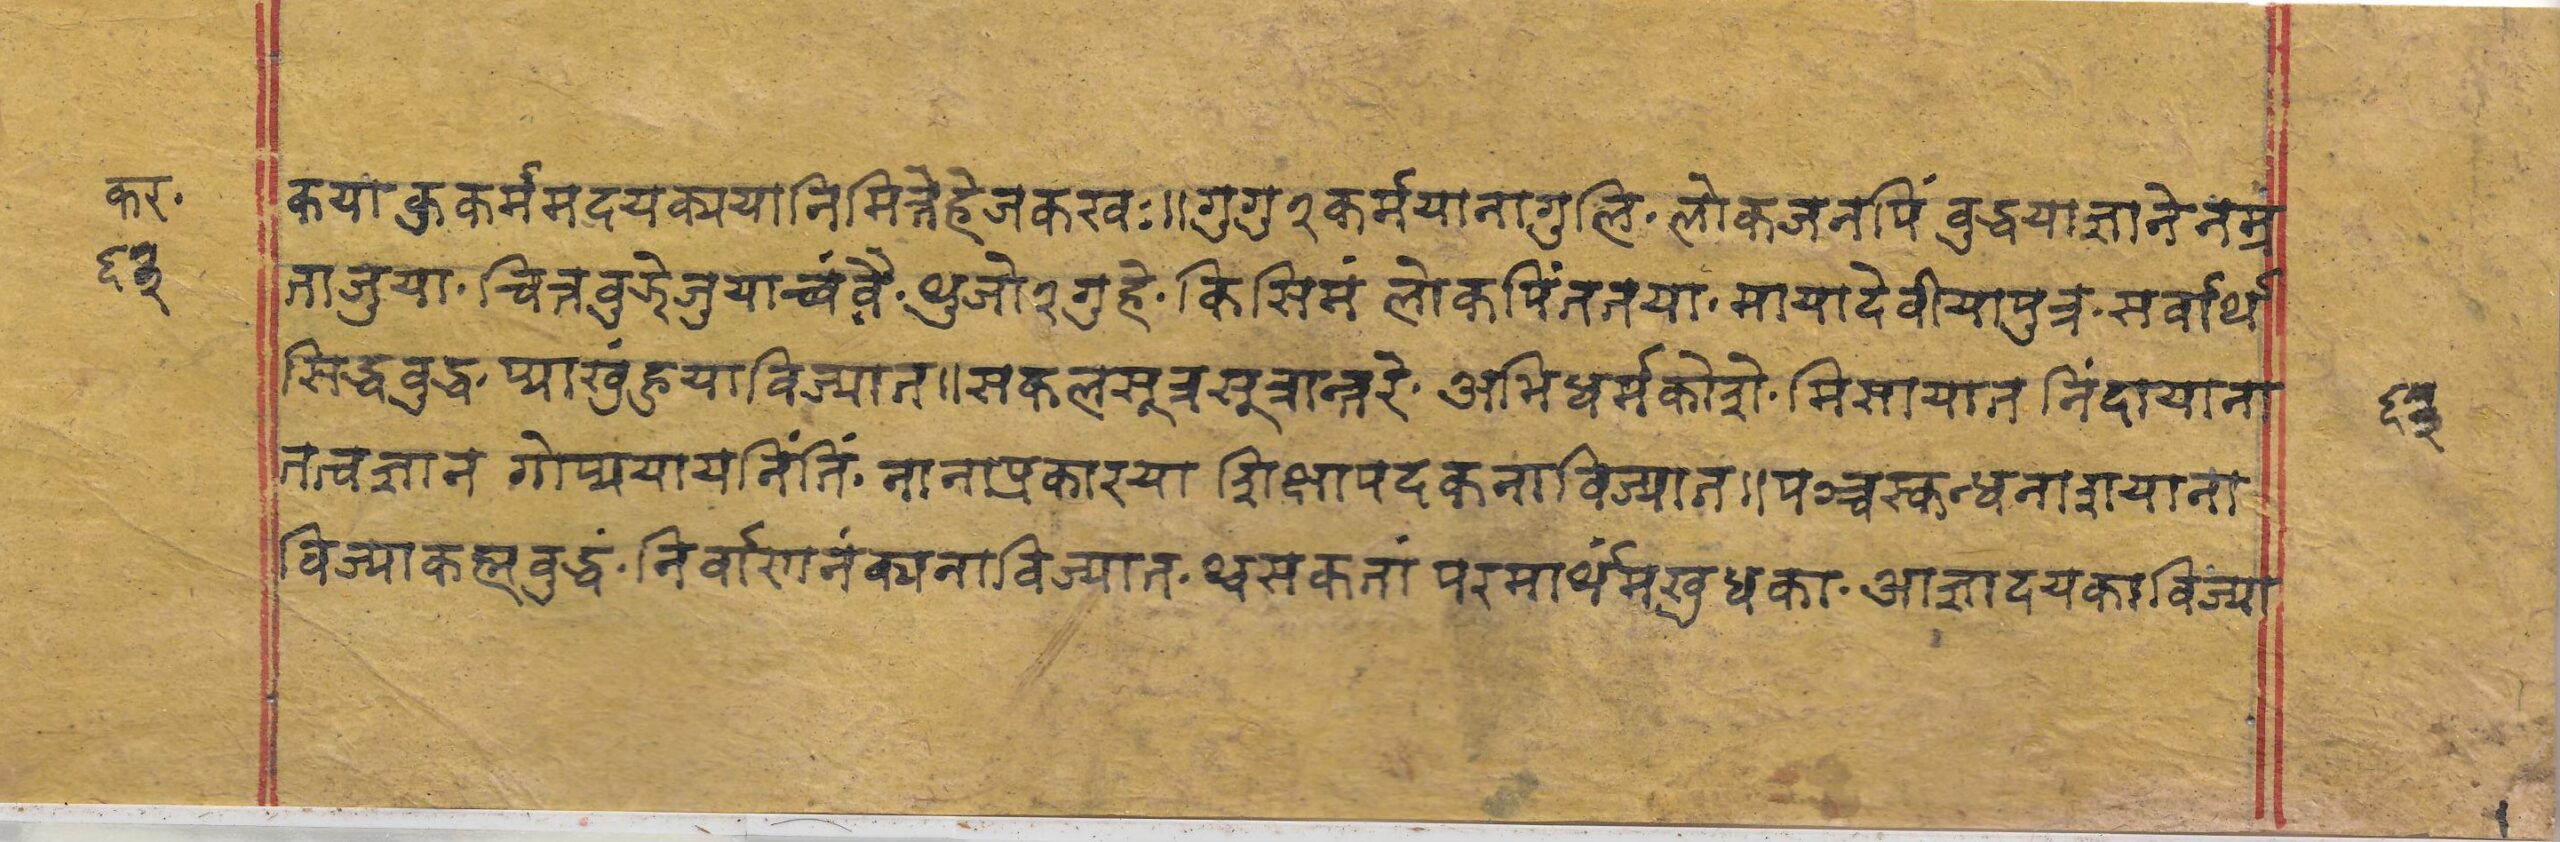 कर.
६३
कया कुकर्ममदयक्ययानिमित्तेहेजकखव॥गुगु२कर्मयानागुलि. लोकजनपिं बुद्धयाज्ञानेनम्र
ताजुया. चित्तबुऱेजुयाच्वंवै. थुजो२गुहे. किसिमं लोकपिंततया. मायादेवीयापुत्र. सर्वार्थ
सिद्धबुद्ध. प्याखुंहुयाविज्यात॥सकलसूत्रसूत्रान्तरे. अभिधर्मकोशे. मिसायात निंदायाना
तत्वज्ञान गोप्ययायनिंतिं. नानाप्रकारया शिक्षापदकनाविज्यात॥पञ्चस्कन्धनाशयाना
विज्याकह्मबुद्धं. निर्वाणनंक्यनाविज्यात. थ्वसकतां परमार्थंमखुधका. आज्ञादयकाविज्या
६३